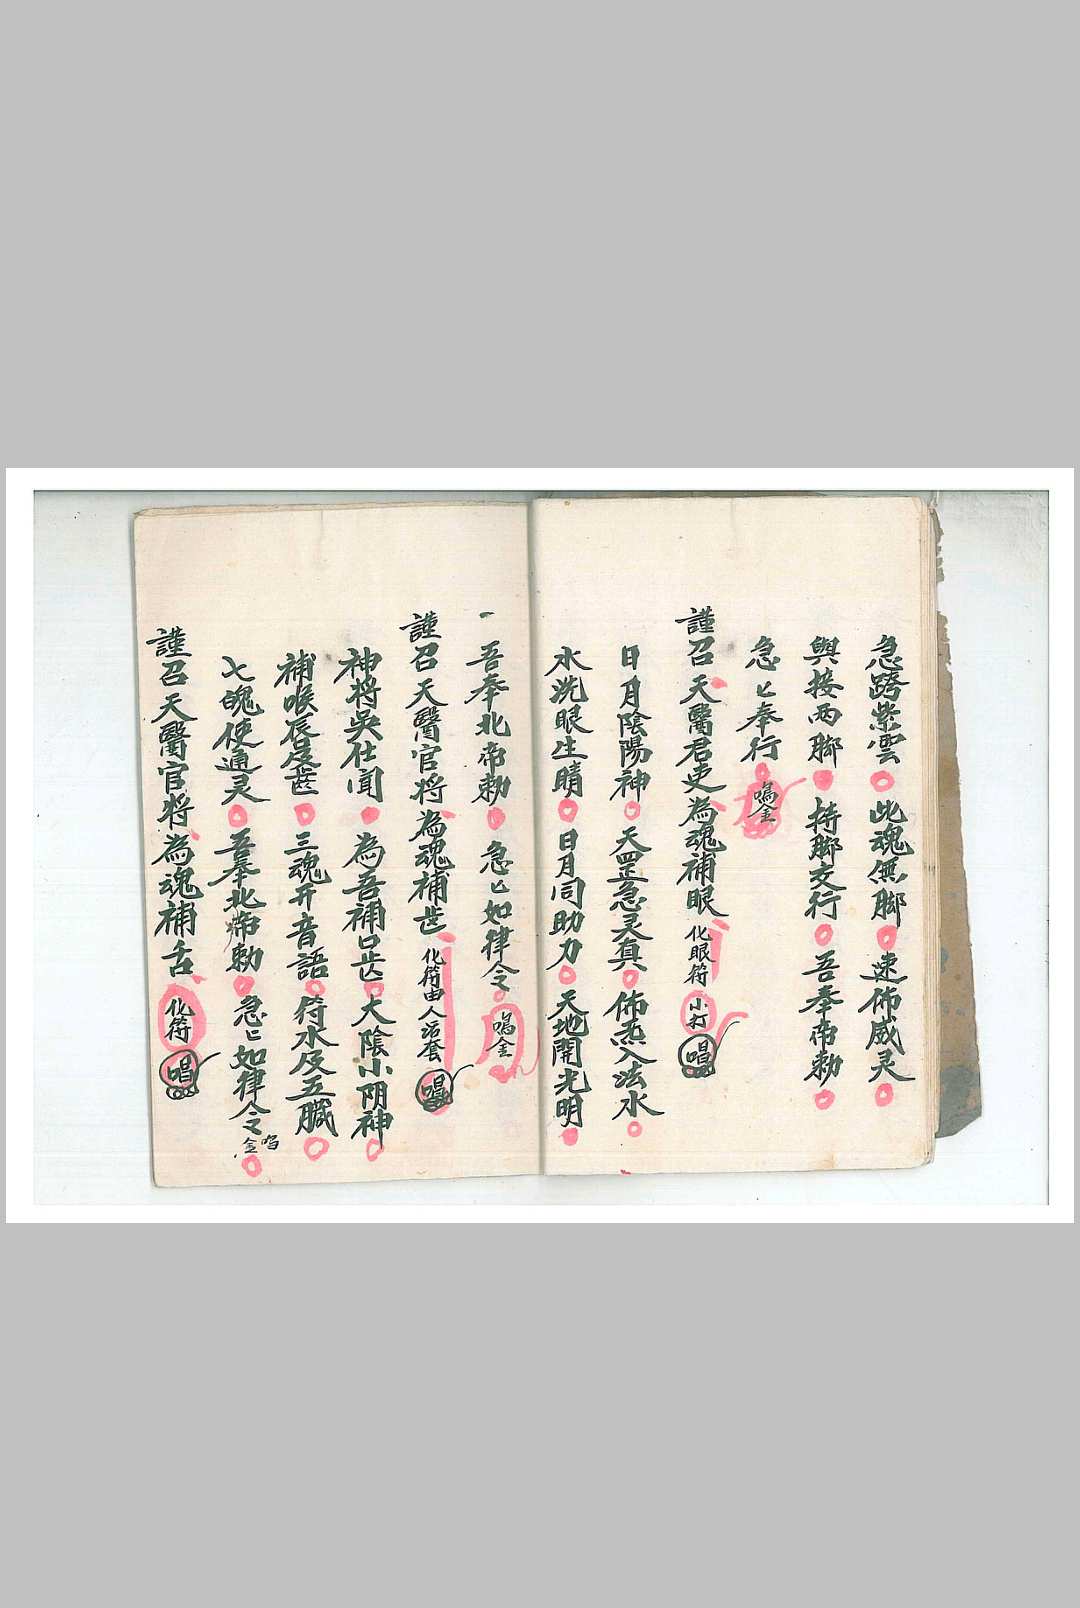 急跨紫雲 此魂無脚 速佈威灵
與接兩脚 持脚交行 吾奉帝勅
急匕奉行 鳴金
謹召天醫君吏為魂補眼 化眼符 小打 唱
日月陰陽神 天罡急灵真 佈炁入法水
水洗眼生睛 日月同助力 天地開光明
一吾奉北帝勅 急匕如律令 鳴金
謹召天醫官将為魂補齿 化符由人活套 唱
神将吳仕聞 為吾補口齿 大陰小阴神
補喉唇及齒 三魂开音語 符水及五臓
七魄使通灵 吾奉北帝勅 急匕如律令 鸣金
謹召天醫官将為魂補舌 化符 唱